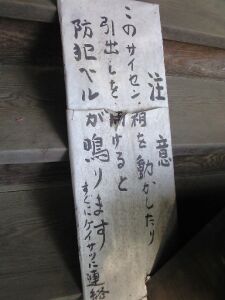 注意
このサイセン箱を動かしたり
引出しを開けると
防犯ベルが鳴ります
すぐにケイサツに連絡